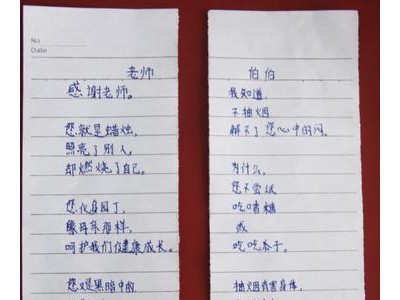 No
Date
老师
感谢老师。
您就是蜡烛,
照亮了别人,
却燃烧了自己。
您化身园丁,
像母亲那样,
呵护我们健康成长。
您又是黑暗中的
伯伯
我知道,
不抽烟
解不了您心中的闷。
为什么,
您不尝试
吃嗜糖
或
吃吃瓜子。
抽烟有害身体,